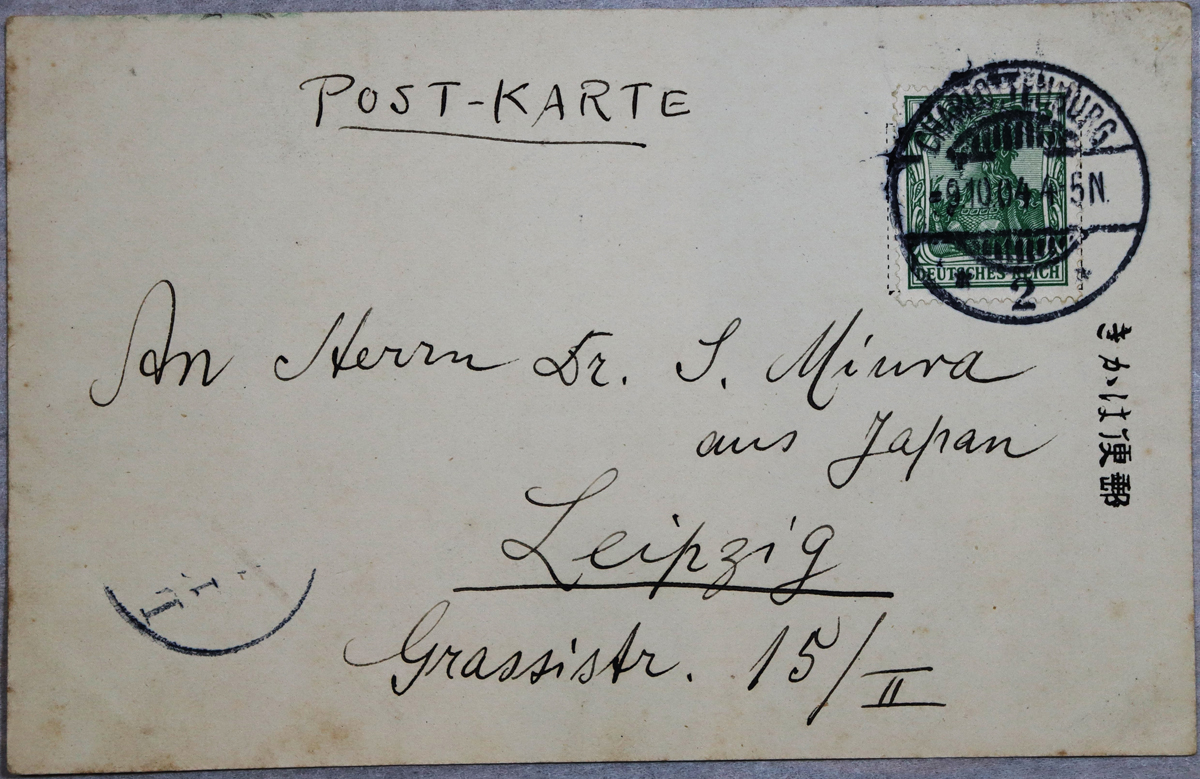 POST-KARTE
CHARLOTTENBURG
9.10.04.4-5N.
DEUTSCHES REICH
* 2 *
郵便はかき
An Herrn Dr. S. Miura
aus Japan
Leipzig
Grassistr. 15/II